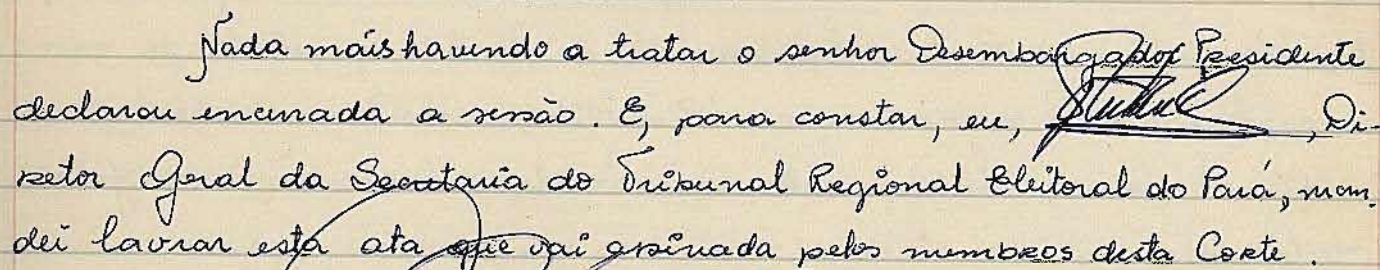 Nada mais havendo a tratar o senhor Desembargador Presidente
declarou encerrada a sessão. E, para constar, eu, , Di-
retor Geral da Secretaria do Tribunal Regional Eleitoral do Pará, man-
dei lavrar esta ata que vai assinada pelos membros desta Corte.